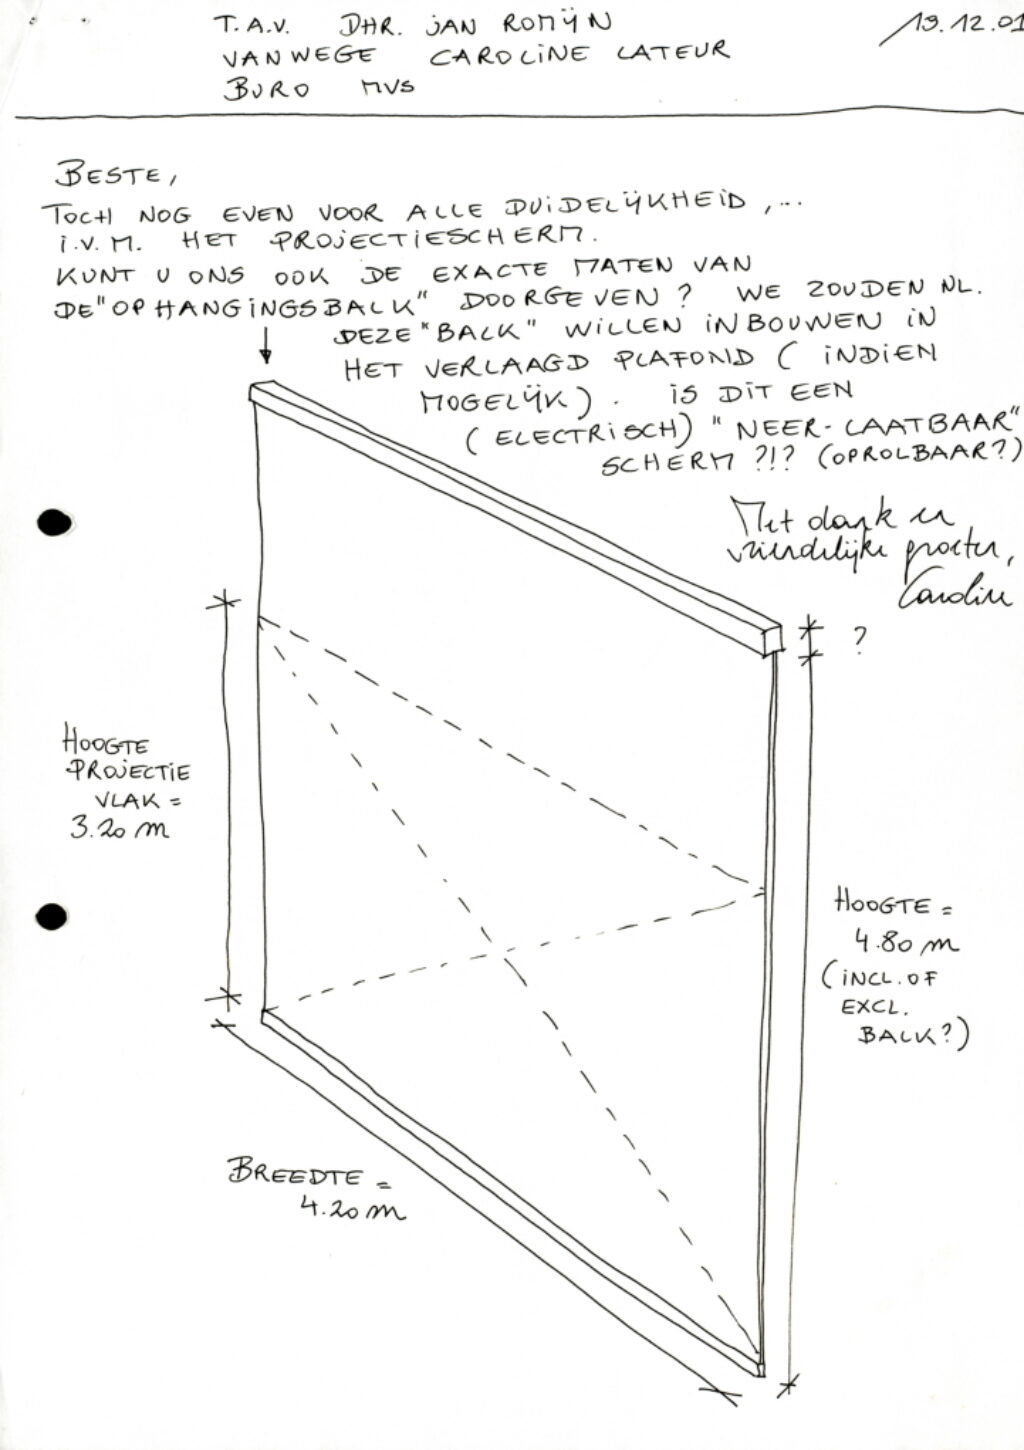 T.A.V. DHR. JAN ROMIJN
13.12.01
VANWEGE CAROLINE LATEUR
BURO MVS
BESTE,
TOCH NOG EVEN VOOR ALLE DUIDELIJKHEID,...
i.V.M. HET PROJECTIESCHERM.
KUNT U ONS OOK DE EXACTE MATEN VAN
DE "OPHANGINGSBALK" DOORGEVEN? WE ZOUDEN NL.
DEZE "BALK" WILLEN INBOUWEN IN
HET VERLAAGD PLAFOND (INDIEN
MOGELIJK). IS DIT EEN
(ELECTRISCH) "NEER-LAATBAAR"
SCHERM ?!? (OPROLBAAR?)
Met dank en
vriendelijke groeten,
Caroline
?
HOOGTE
PROJECTIE
VLAK =
3.20 m
HOOGTE =
4.80 m
(INCL. OF
EXCL.
BALK?)
BREEDTE =
4.20 m